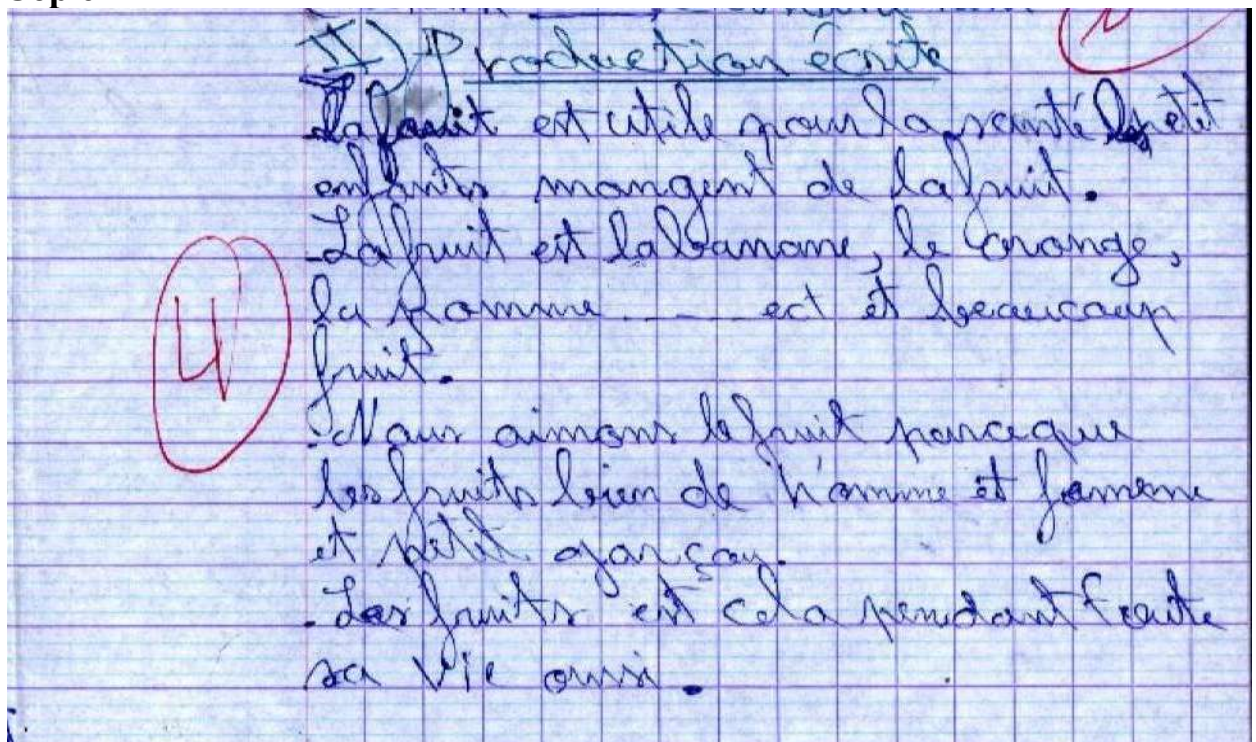 II) Production écrite
La fruit est utile pour la santé les petit
enfants mangent de la fruit.
La fruit est la banane, le orange,
la pomme ---- ect et beaucoup
fruit.
4
- Nous aimons le fruit parceque
les fruits bien de h'omme et fameme
et petit garçay.
- Les fruits est cela pendant toute
sa vie ausi.